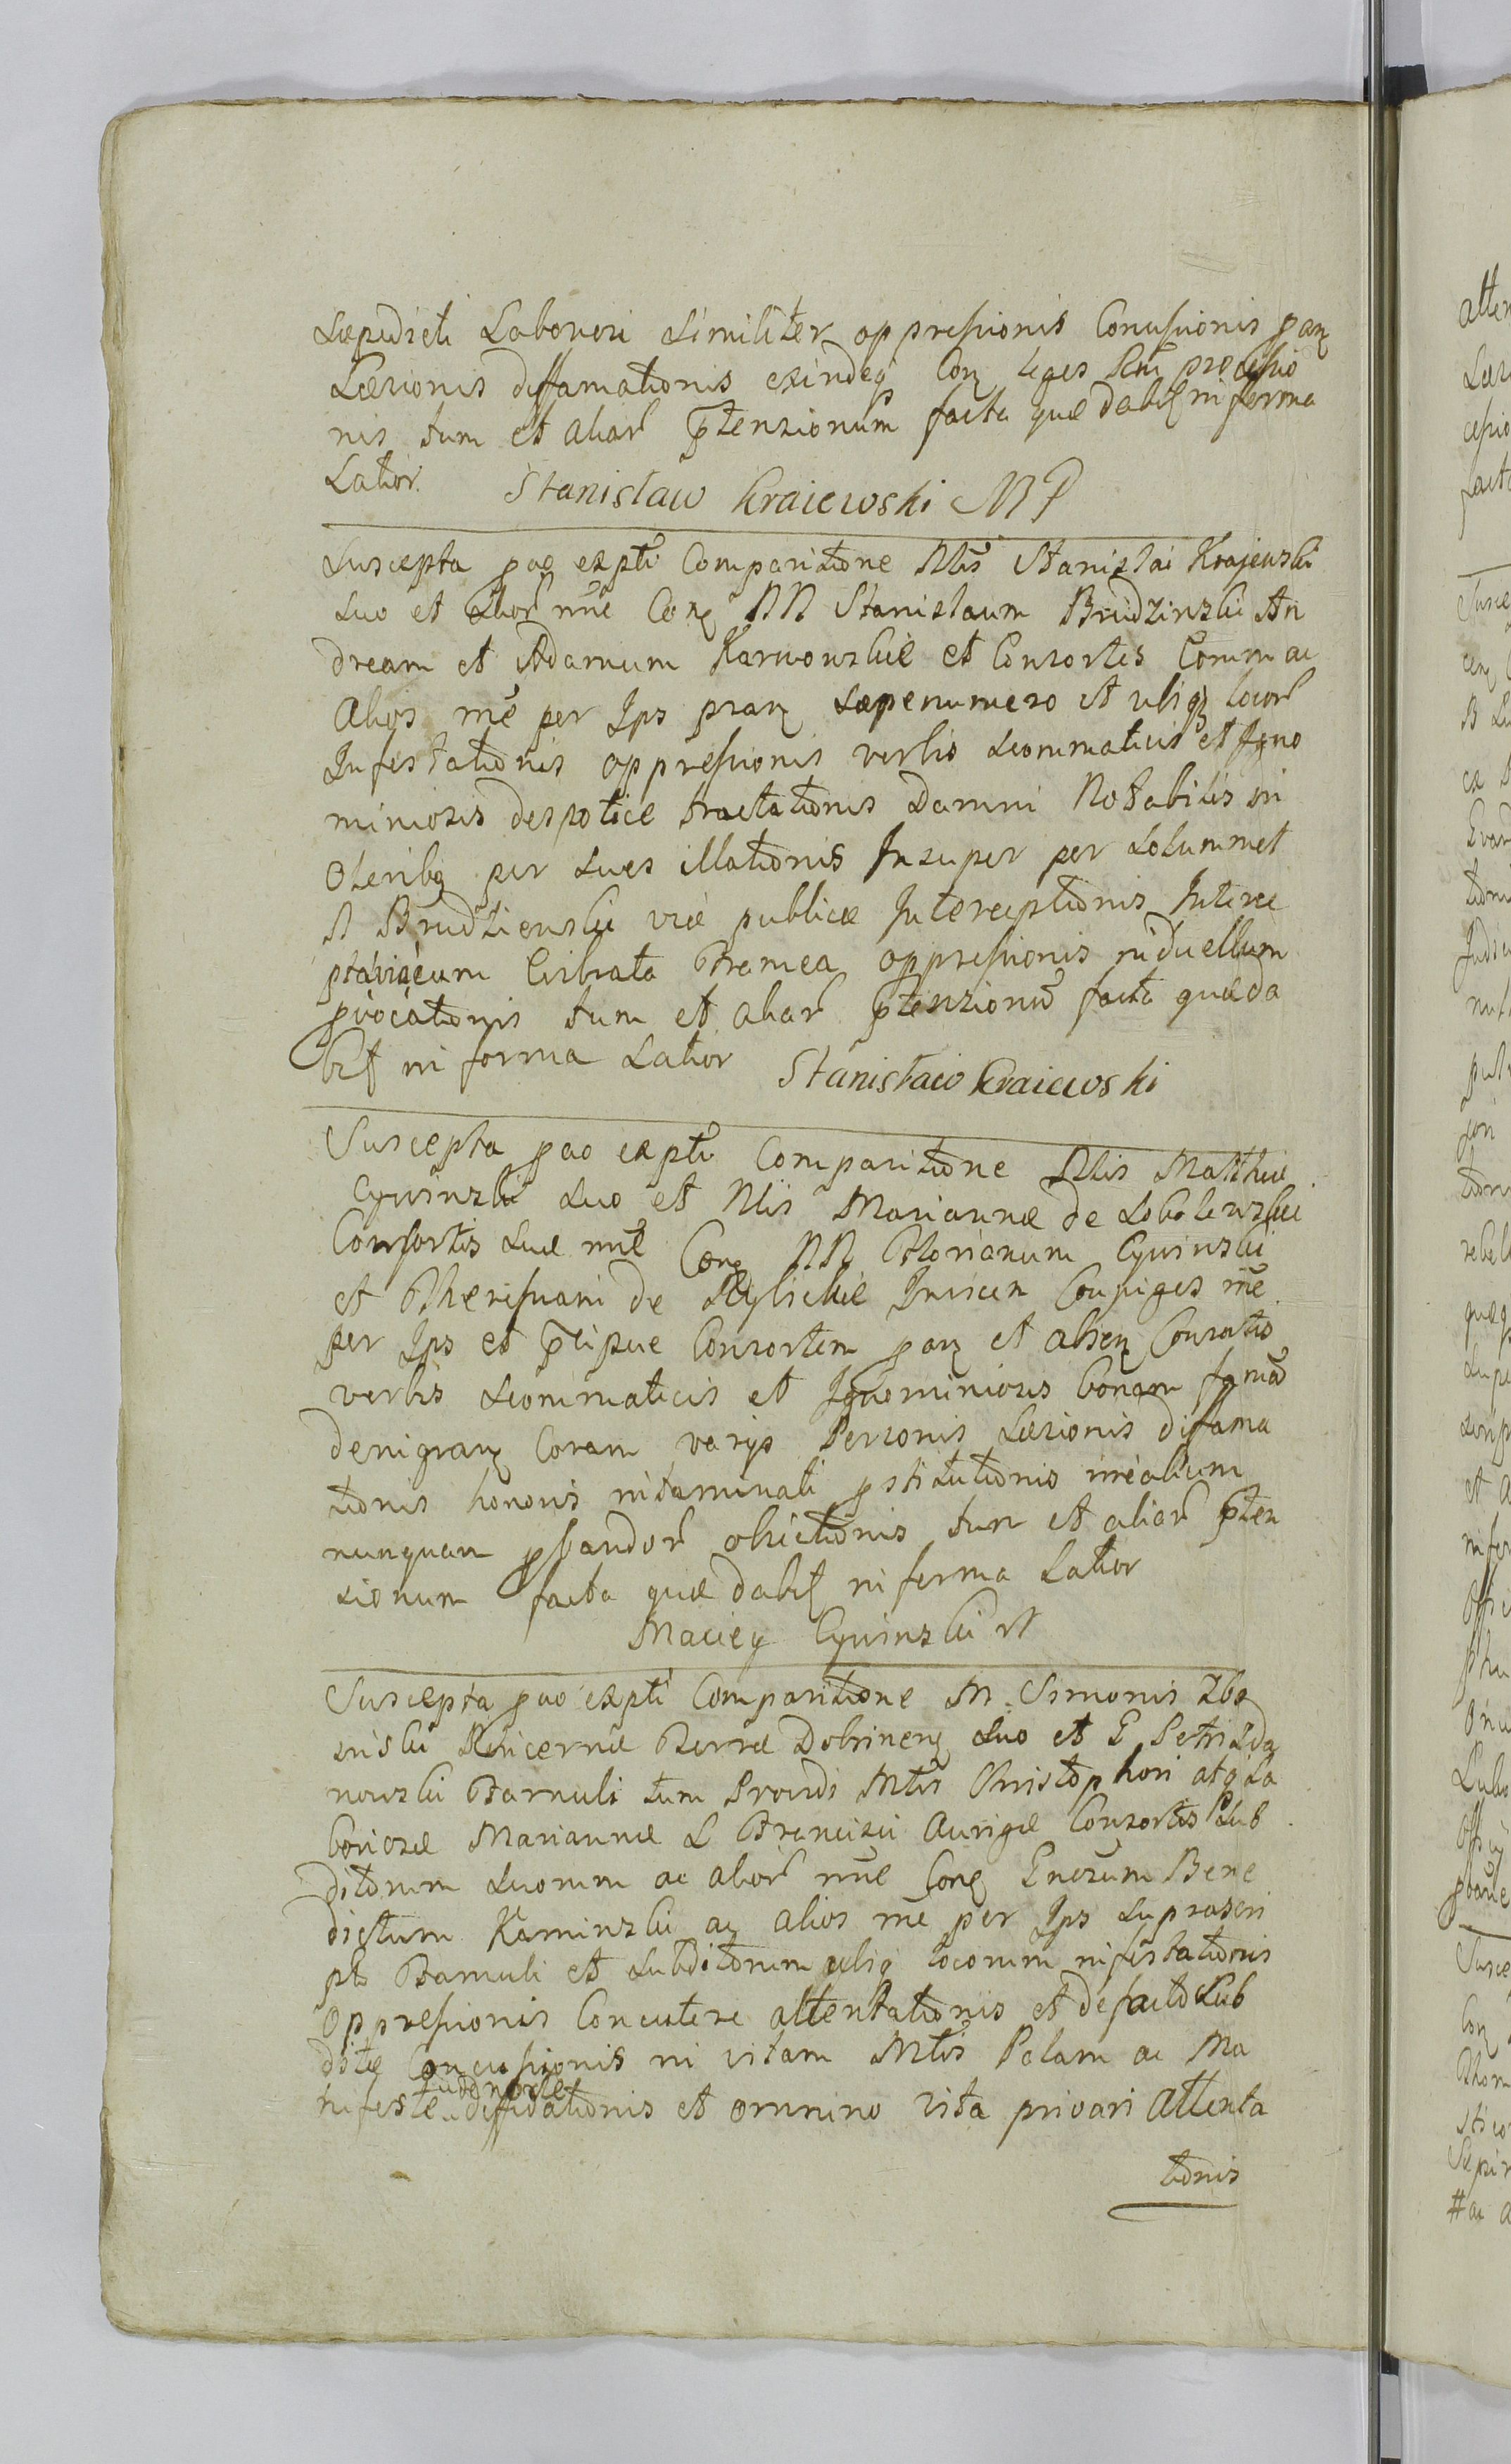 Sæpedicti Laboriosi similiter oppressionis Concussionis par
Læsionis diffamationis exindeq Con leges Rni processio
nis tum et aliar ptensionum facta quæ dabit in forma
Latior. Stanisław Kraiewski MP
Suscepta pao expti Comparitione Nlis Stanislai Krajewski
suo et alior nne Con NN Stanislaum Brudzinski An
dream et Adamum Karwowskie et Consortes Comm ac
Alios me per Ips pran sæpenumero et ubiq locor
Infestationis oppressionis verbis scommaticis et Igno
miniosis despotice tractationis Damni Notabilis in
Oleribq per sues illationis Insuper per solummet
N Brudzienski viæ publicæ Interceptionis Interce
pta viæ cum librata Framea oppressionis in duellum
pvocationis tum et aliar ptensionu facta quæ da
bit in forma Latior Stanisław Kraiewski
Suscepta pao expti Comparitione Nlis Matthiæ
Cywinski suo et Nlis Mariannæ de Sobolewskie
Consortis suæ nne Con NN Florianum Cywinski
et Theressiam de Rylskie Invicem Conjuges me
per Ips et pcipue Consortem par et absen Consortis
verbis scommaticis et Ignominiosis bonam fama
denigran Coram varys Personis Læsionis difama
tionis honoris intaminati pstitutionis irrealium
nunquam pbandor obiectionis tum et aliar pten
sionum facta quæ dabit in forma Latior
Maciey Cywinski
Suscepta pao expti Comparitione M. Simonis Zbo
inski Pincernæ Terræ Dobrinen suo et G Petri Zda
nowski Famuli tum Providi Mtis Christophori atq La
boriosæ Mariannæ L Francisci Aurigæ Consortis Sub
ditorum suorum ac alior nne Con Gnosum Bene
dictum Kaminski ac alios me per Ips suprascri
pti Famuli et subditorum ubiq locorum infestationis
Oppressionis Concutere attentationis et de facto Sub
ditæ Concussionis in vitam Mtis Palam ac Ma
nifeste diffidationis et omnino vita privari Attenta
tionis